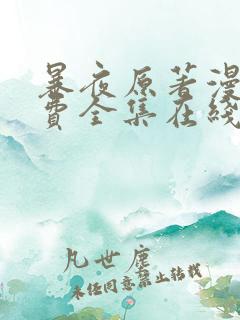 暴夜原著漫
费全集在线
凡世尘
未经同意禁止转载